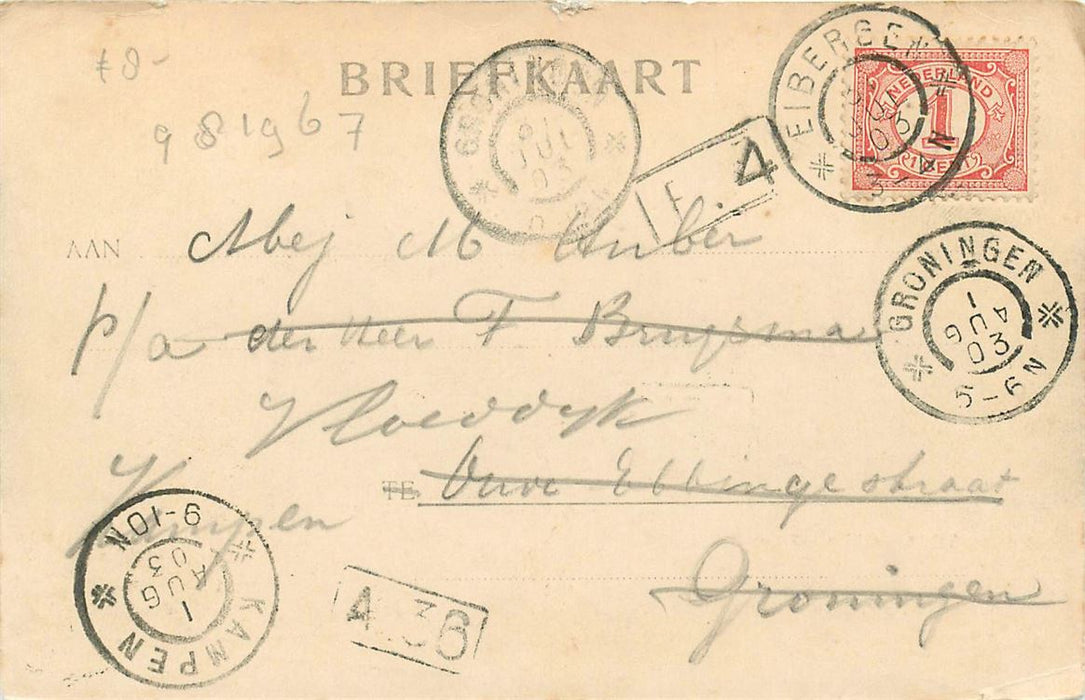 £8-
BRIEFKAART
981967
GRONINGEN
JUL
03
EIBERGEN
NEDERLAND
1
1 CENT
F. 4
AAN Mej M Huber
p/a der Heer F Brugsma
GRONINGEN
1
AUG
03
5-6N
Vloeddyk
TE Oude Ebbingestraat
Kampen
Groningen
9-10N
1
AUG
03
KAMPEN
A 36